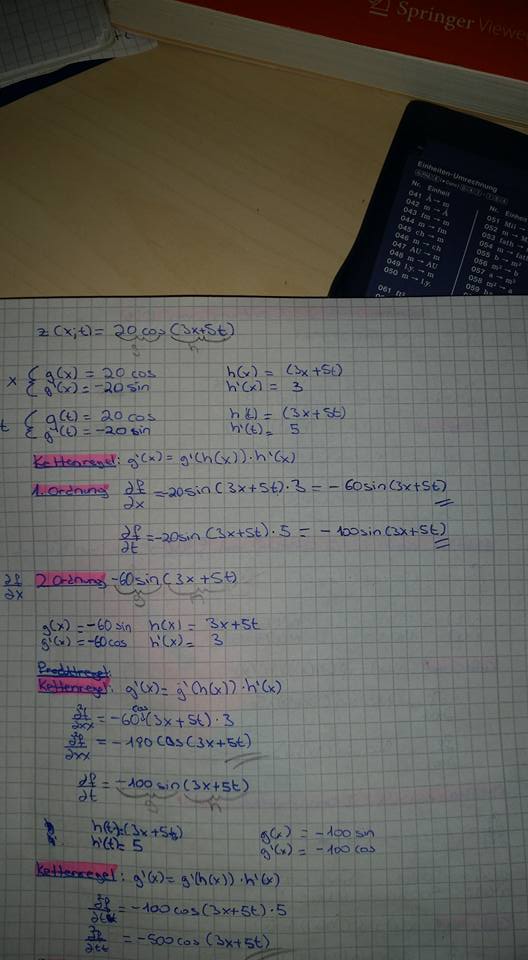 Springer Vieweg
Einheiten-Umrechnung
Nr. Einheit
041 Å → m
042 m → Å
043 fm → m
044 m → fm
045 ch → m
046 m → ch
047 AU → m
048 m → AU
049 l.y. → m
050 m → l.y.
Nr.
051 Mil →
052 m →
053 fath →
054 m → fath
055 b → m²
056 m² → b
057 a → m²
058 m² → a
061 ft²
z(x,t) = 20 cos (3x+5t)
g h
x { g(x) = 20 cos h(x) = (3x+5t)
g'(x) = -20 sin h'(x) = 3
t { g(t) = 20 cos h(t) = (3x+5t)
g'(t) = -20 sin h'(t) = 5
Kettenregel: g'(x) = g'(h(x)) · h'(x)
1. Ordnung ∂f/∂x = -20 sin (3x+5t) · 3 = -60 sin (3x+5t)
∂f/∂t = -20 sin (3x+5t) · 5 = -100 sin (3x+5t)
∂f/∂x 2. Ordnung -60 sin (3x+5t)
g h
g(x) = -60 sin h(x) = 3x+5t
g'(x) = -60 cos h'(x) = 3
Kettenregel: g'(x) = g'(h(x)) · h'(x)
∂f/∂xx = -60 cos (3x+5t) · 3
∂f/∂xx = -180 cos (3x+5t)
∂f/∂t = -100 sin (3x+5t)
g h
h(t) = (3x+5t) g(x) = -100 sin
h'(t) = 5 g'(x) = -100 cos
Kettenregel: g'(x) = g'(h(x)) · h'(x)
∂f/∂tt = -100 cos (3x+5t) · 5
∂f/∂tt = -500 cos (3x+5t)